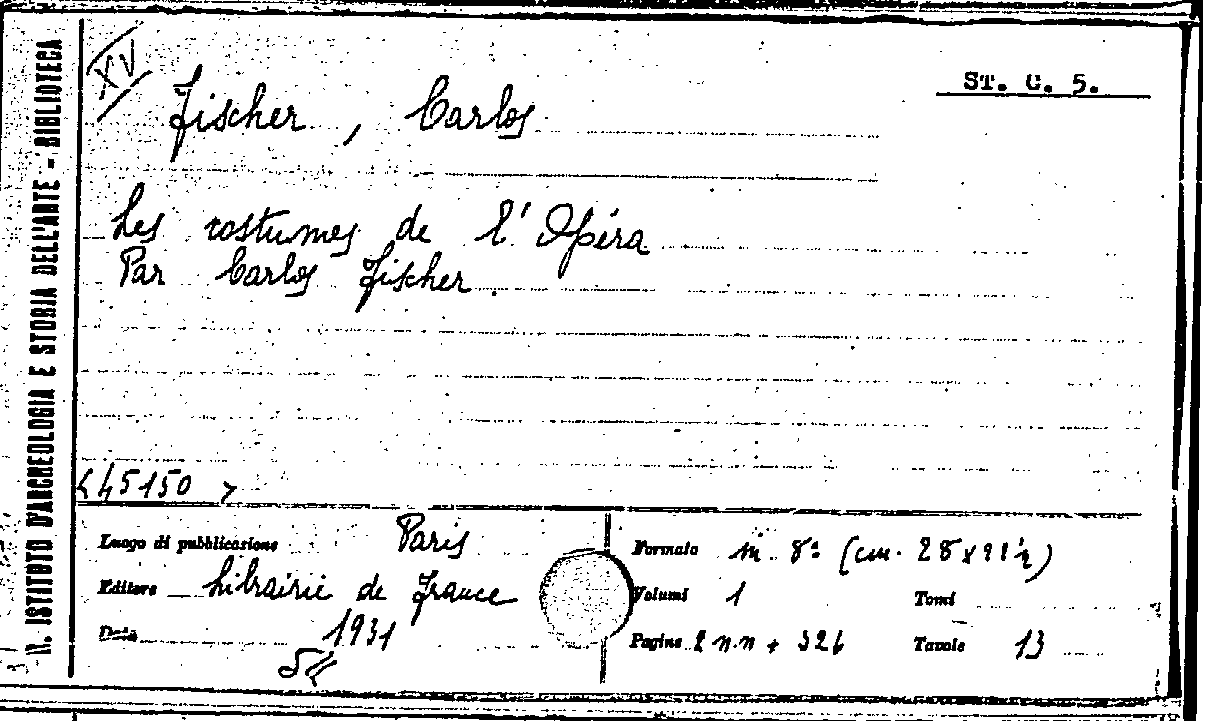 R. ISTITUTO D'ARCHEOLOGIA E STORIA DELL'ARTE - BIBLIOTECA
XV
ST. C. 5.
Fischer, Carlos
Les costumes de l'Opéra
Par Carlos Fischer.
<45150>
Luogo di pubblicazione Paris
Editore Librairie de France
Data 1931
Formato in 8º (cm. 28x21½)
Volumi 1 Tomi
Pagine 2 n.n + 326 Tavole 13